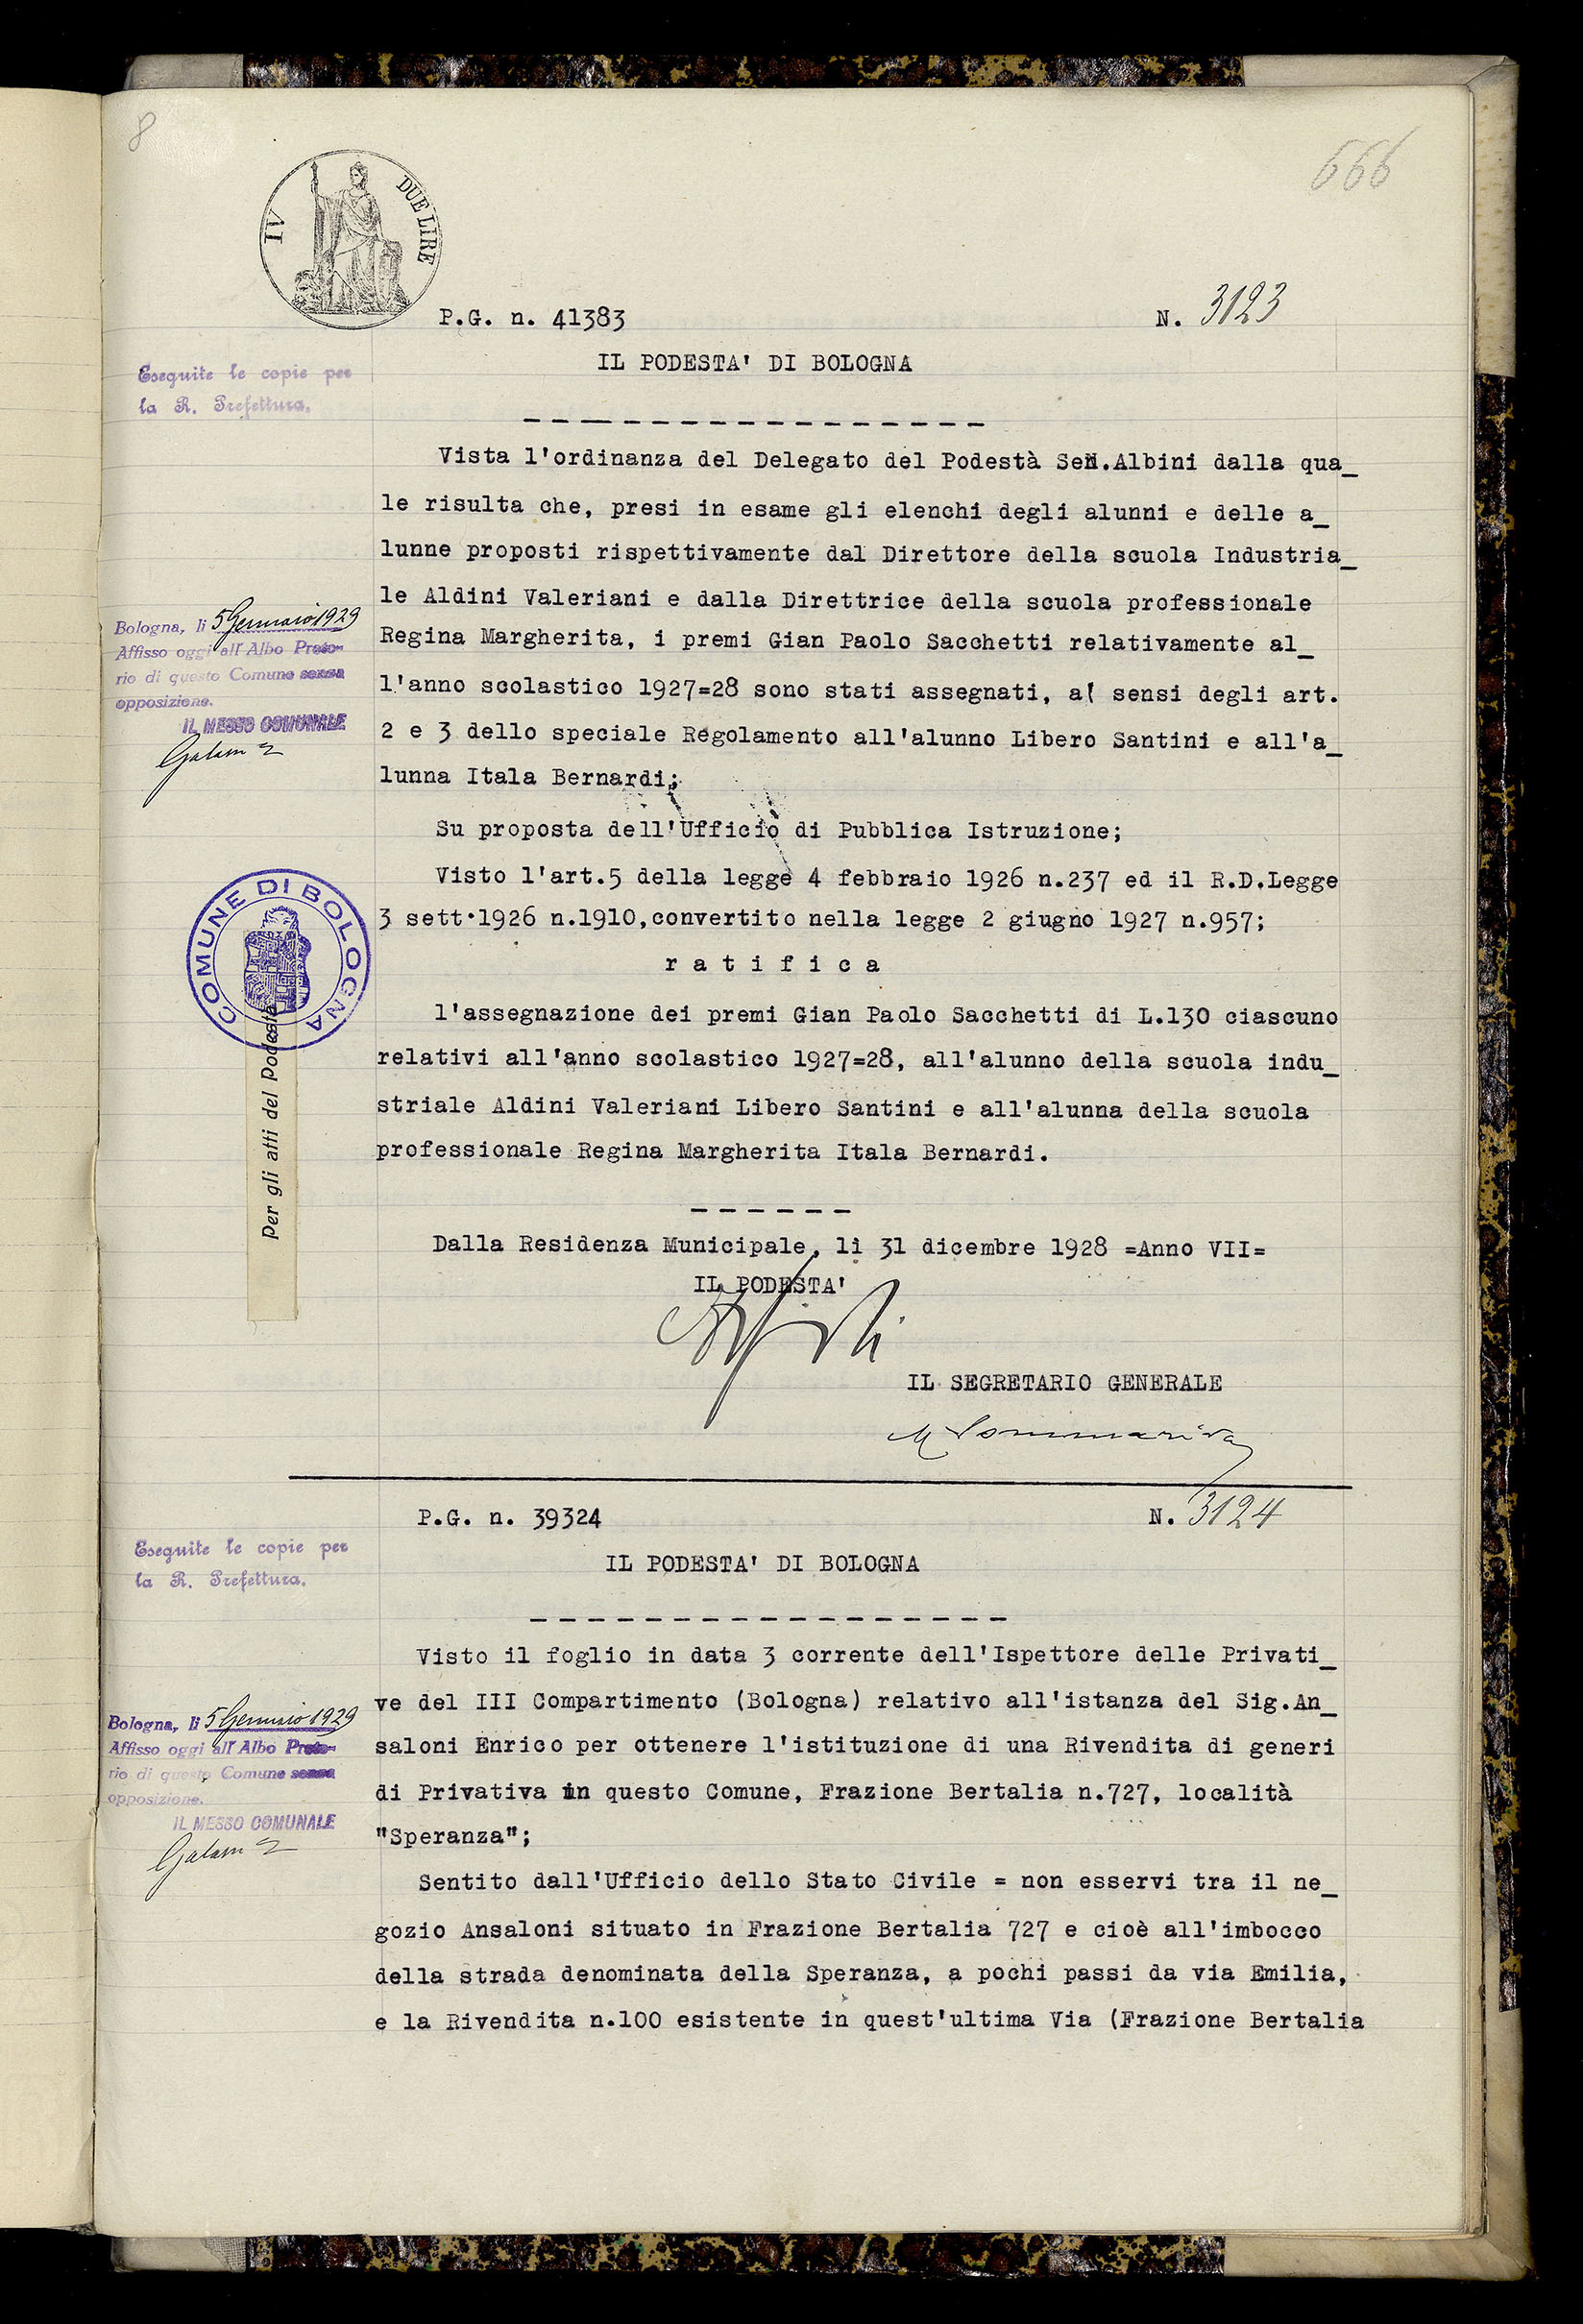 8
666
IV
DUE LIRE
P.G. n. 41383
N. 3123
IL PODESTA' DI BOLOGNA
Eseguite le copie per
la R. Prefettura.
Vista l'ordinanza del Delegato del Podestà Sen.Albini dalla qua_
le risulta che, presi in esame gli elenchi degli alunni e delle a_
lunne proposti rispettivamente dal Direttore della scuola Industria_
le Aldini Valeriani e dalla Direttrice della scuola professionale
Regina Margherita, i premi Gian Paolo Sacchetti relativamente al_
l'anno scolastico 1927=28 sono stati assegnati, ai sensi degli art.
2 e 3 dello speciale Regolamento all'alunno Libero Santini e all'a_
lunna Itala Bernardi;
Bologna, li 5 Gennaio 1929
Affisso oggi all'Albo Preto-
rio di questo Comune senza
opposizione.
IL MESSO COMUNALE
Su proposta dell'Ufficio di Pubblica Istruzione;
Visto l'art.5 della legge 4 febbraio 1926 n.237 ed il R.D.Legge
3 sett.1926 n.1910,convertito nella legge 2 giugno 1927 n.957;
r a t i f i c a
COMUNE DI BOLOGNA
Per gli atti del Podestà
l'assegnazione dei premi Gian Paolo Sacchetti di L.130 ciascuno
relativi all'anno scolastico 1927=28, all'alunno della scuola indu_
striale Aldini Valeriani Libero Santini e all'alunna della scuola
professionale Regina Margherita Itala Bernardi.
Dalla Residenza Municipale, lì 31 dicembre 1928 =Anno VII=
IL PODESTA'
IL SEGRETARIO GENERALE
M Sommariva
P.G. n. 39324
N. 3124
IL PODESTA' DI BOLOGNA
Eseguite le copie per
la R. Prefettura.
Visto il foglio in data 3 corrente dell'Ispettore delle Privati_
ve del III Compartimento (Bologna) relativo all'istanza del Sig.An_
saloni Enrico per ottenere l'istituzione di una Rivendita di generi
di Privativa in questo Comune, Frazione Bertalia n.727, località
"Speranza";
Bologna, li 5 Gennaio 1929
Affisso oggi all'Albo Preto-
rio di questo Comune senza
opposizione.
IL MESSO COMUNALE
Sentito dall'Ufficio dello Stato Civile = non esservi tra il ne_
gozio Ansaloni situato in Frazione Bertalia 727 e cioè all'imbocco
della strada denominata della Speranza, a pochi passi da via Emilia,
e la Rivendita n.100 esistente in quest'ultima Via (Frazione Bertalia